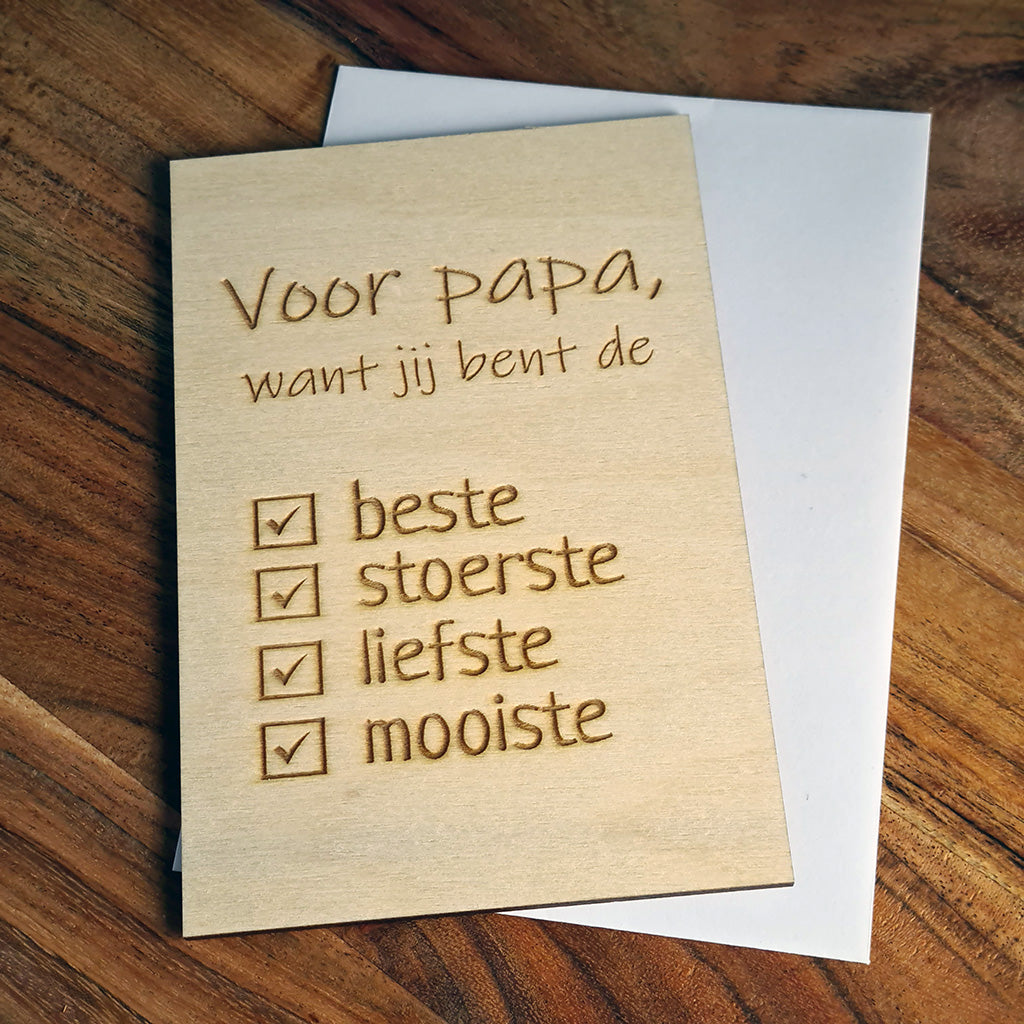 Voor papa,
want jij bent de
beste
stoerste
liefste
mooiste